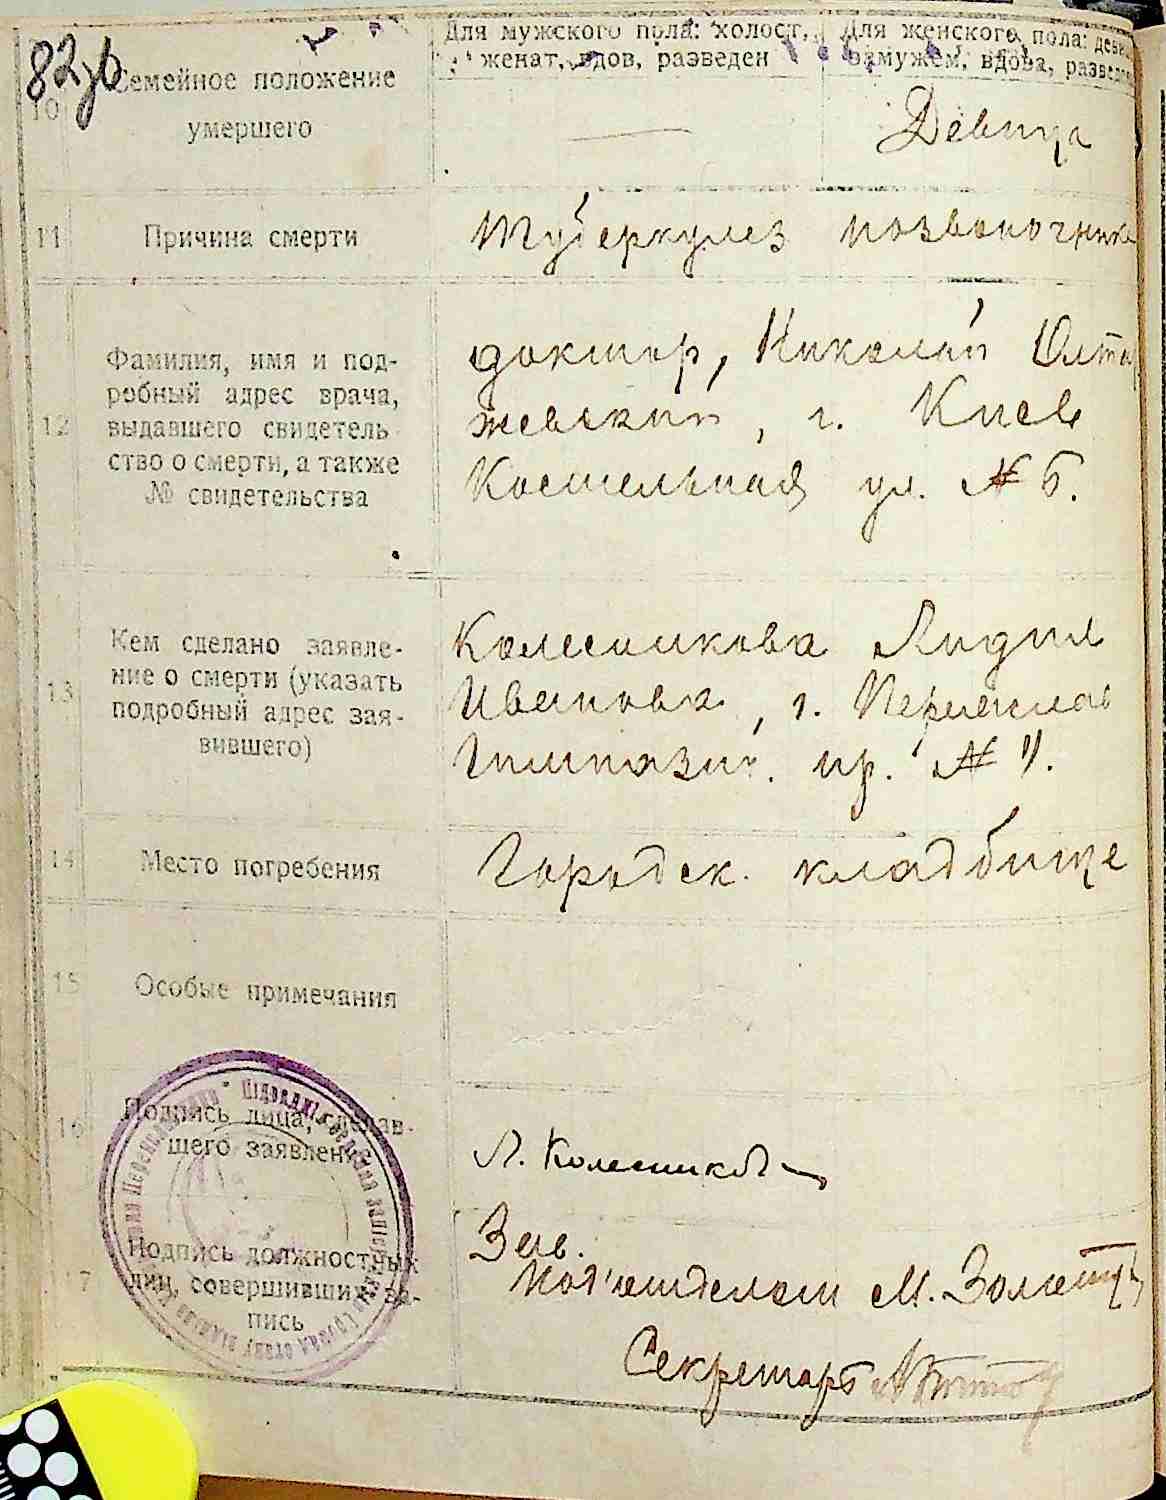 82
Для мужского пола: холост,
женат, вдов, разведен
Для женского пола: деви
замужем, вдова, разведен
10
Семейное положение
умершего
Девица
11
Причина смерти
Туберкулез позвоночника
12
Фамилия, имя и под-
робный адрес врача,
выдавшего свидетель
ство о смерти, а также
№ свидетельства
доктор, Николай Олтар
жевский, г. Киев
Костельная ул. № 6.
13
Кем сделано заявле-
ние о смерти (указать
подробный адрес зая-
вившего)
Колесникова Лидия
Ивановна, г. Переяслав
Гимназич. пр. №
14
Место погребения
Городск. кладбище
15
Особые примечания
16
Подпись лица, сделав-
шего заявление
Л. Колесников
17
Подпись должностных
лиц, совершивших за-
пись
Зав.
Под'отделом М.
Секретарь